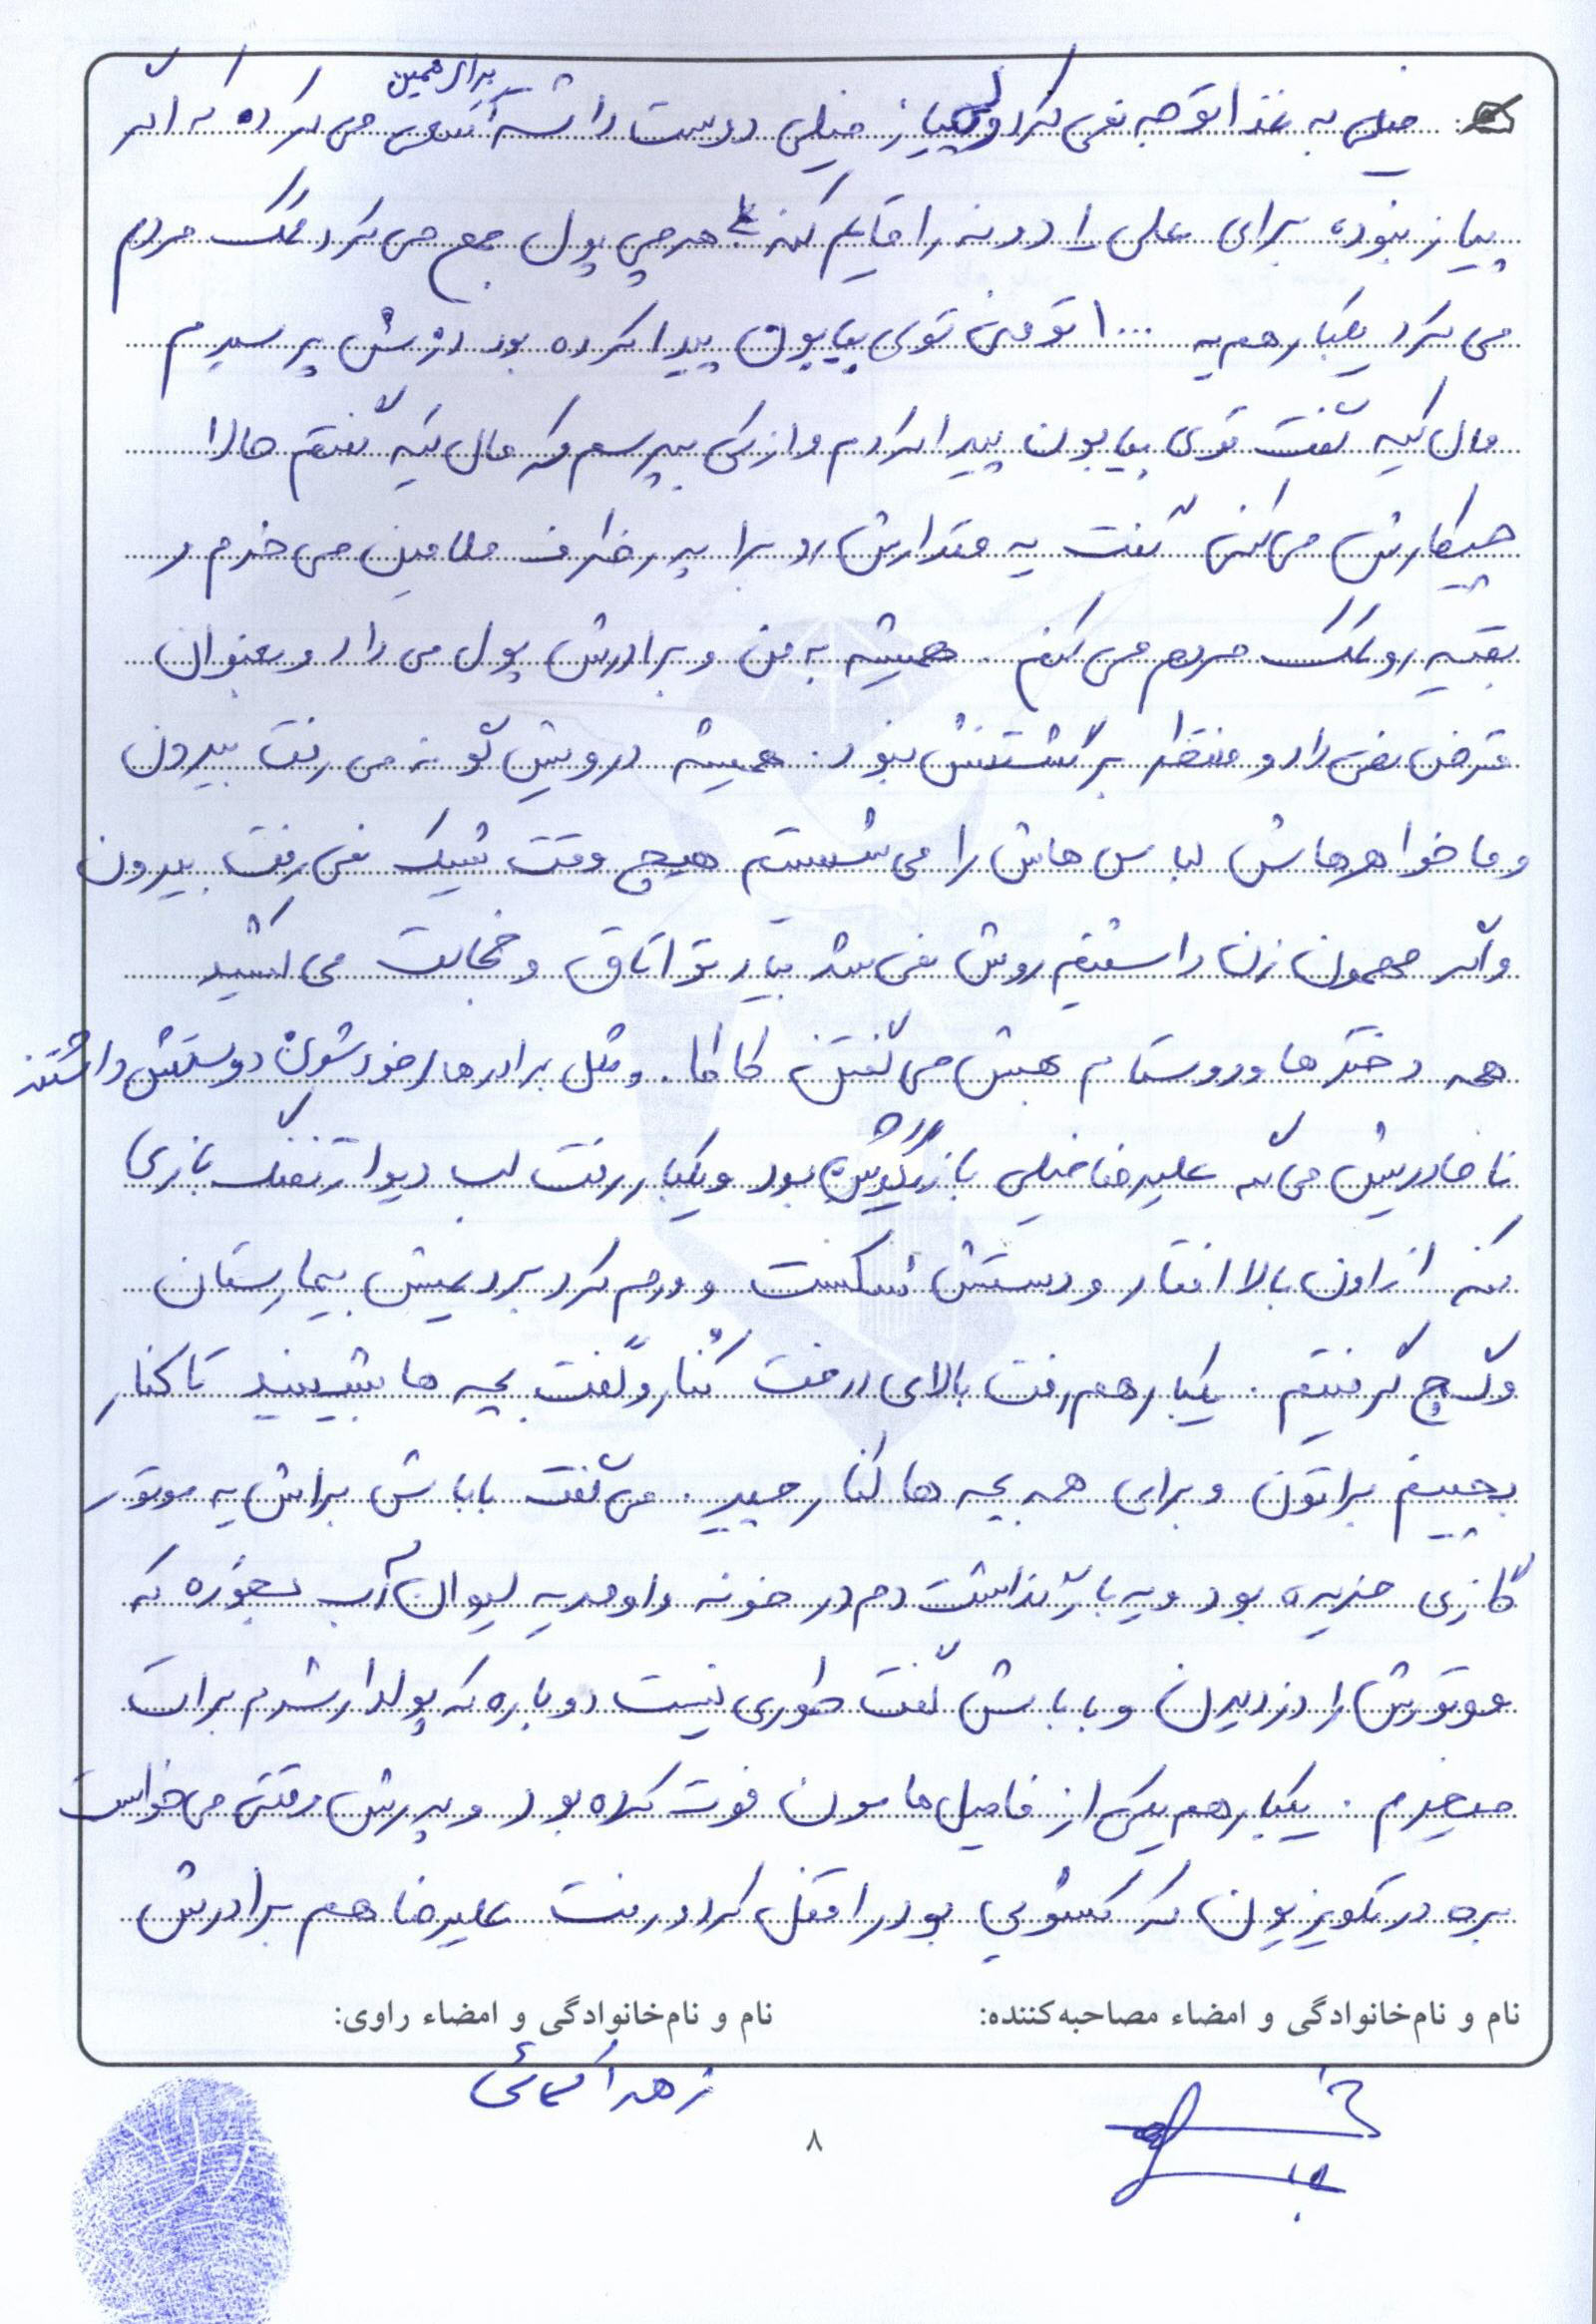 خیلی به غذا توجه نمی کرد ولی پیاز خیلی دوست داشته برای همین می کرده که اگر
پیاز نبوده برای علی را دونه را قایم کنه هرچی پول جمع می کرد کمک مردم
می کرد یکبار هم یه ۱۰۰۰ تومنی توی بیابون پیدا کرده بود ازش پرسیدم
مال کیه گفت توی بیابون پیدا کردم و از کی بپرسم که مال کیه گفتم حالا
چیکارش می کنی گفت یه مقدارش رو برا پدر ظرف ملامین می خرم و
بقیه رو کمک مردم می کنم. همیشه به من و برادرش پول می داد و بعنوان
قرض نمی داد و منتظر برگشتنش نبود. همیشه درویش گونه می رفت بیرون
و ما خواهرهاش لباس هاش را می شستیم هیچ وقت شیک نمی رفت بیرون
و اگر مهمون زن داشتیم روش نمی شد بیاد تو اتاق و خجالت می کشید
همه دخترها و دوستام بهش می گفتن کاکا. و مثل برادرهای خودشون دوستش داشتند
نامادریش می گه علیرضا خیلی بازیگوش بود و یکبار رفت لب دیوار تفنگ بازی
کنه از اون بالا افتاد و دستش شکست و ورم کرد بردیمش بیمارستان
و گچ گرفتیم. یکبار هم رفت بالای درخت کنار و گفت بچه ها بشینید تا کنار
بچینم براتون و برای همه بچه ها کنار چید. می گفت باباش براش یه موتور
گازی خریده بود و یه بار گذاشت دم در خونه و اومد یه لیوان آب بخوره که
موتورش را دزدیدن و باباش گفت طوری نیست دوباره که پولدار شدم برات
میخرم. یکبار هم یکی از فامیل هامون فوت کرده بود و پدرش وقتی می خواست
بره در تلویزیون که کشویی بود را قفل کرد و رفت علیرضا هم برادرش
نام و نام‌خانوادگی و امضاء مصاحبه‌کننده:
نام و نام‌خانوادگی و امضاء راوی:
۸